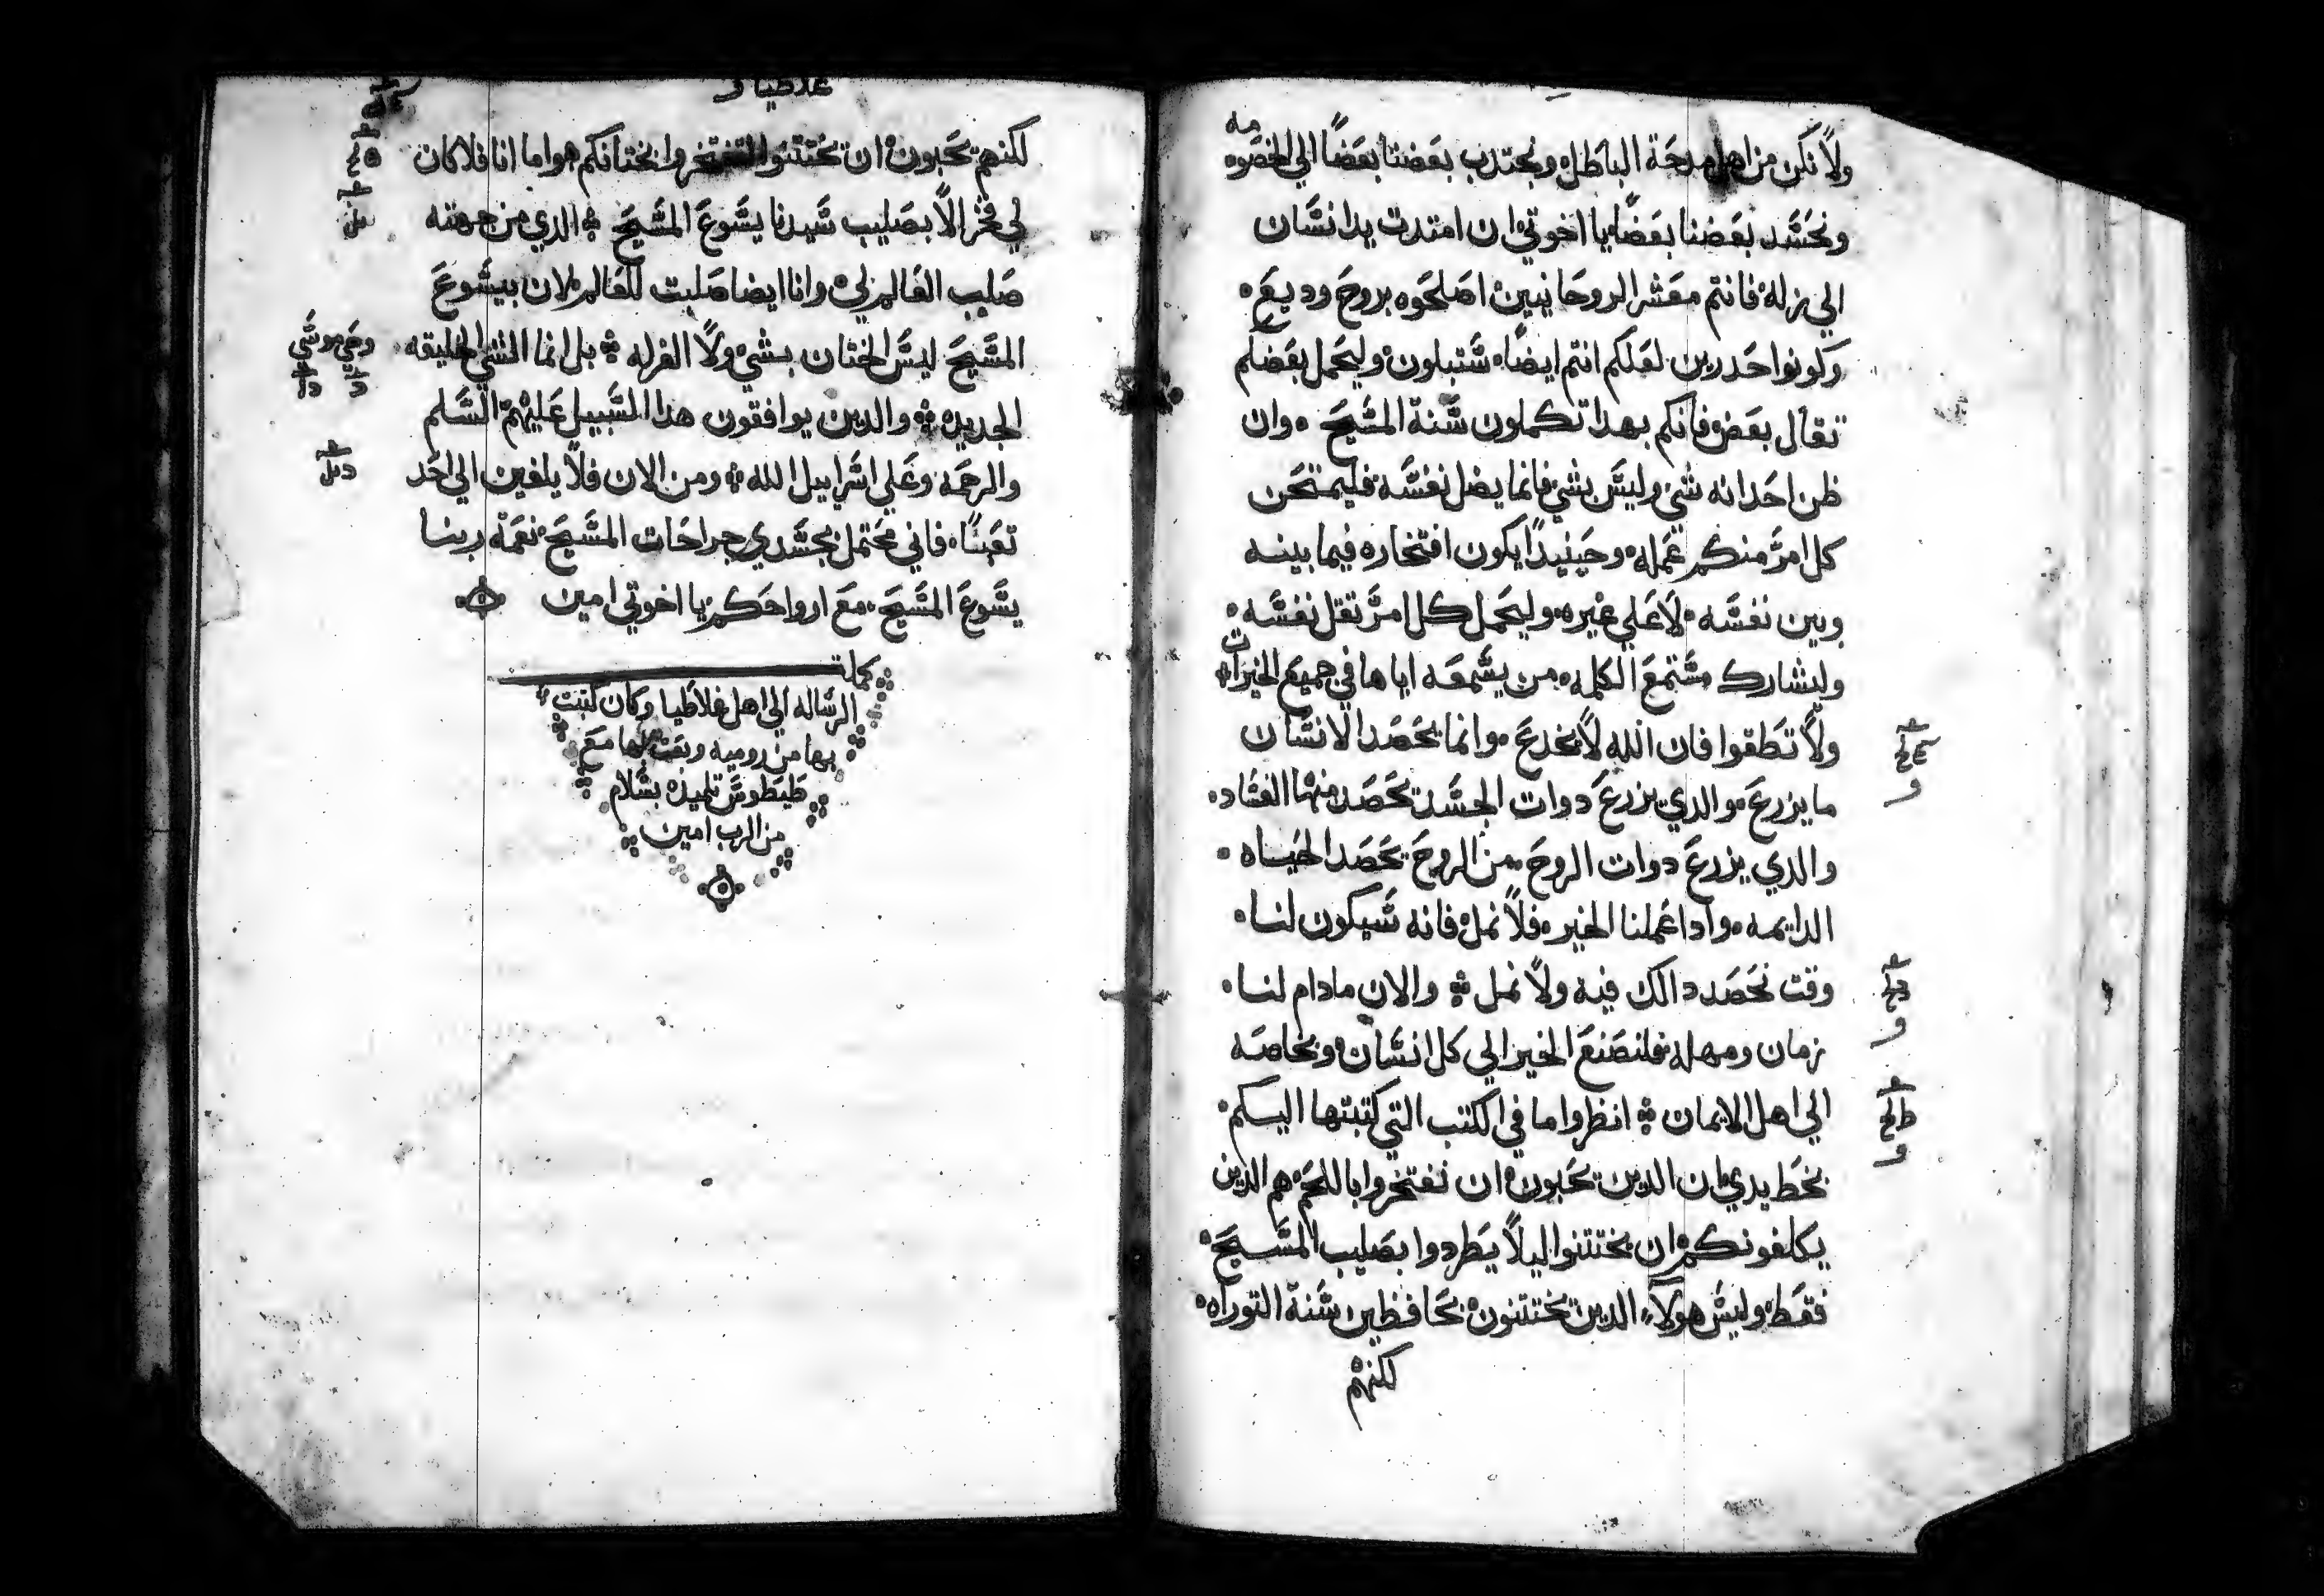 ولا نكن من اهل مدحة الباطل ونجتدب بعضنا بعضا الي الخصومه
ونحسد بعضنا بعضا يا اخوتي ان امتدت يد انسان
الي زله فانتم معشر الروحانيين اصلحوه بروح وديعه
وكونوا حدرين لعلكم انتم ايضا ستبلون وليحمل بعضكم
تقال بعض فانكم بهدا تكملون سنة المسيح وان
ظن احد انه شي وليس بشي فانما يضل نفسه فليمتحن
كل امر منكم عمله وحينيدا يكون افتخاره فيما بينه
وبين نفسه لا علي غيره وليحمل كل امر تقل نفسه
وليشارك مستمع الكلمه من يسمعه اياها في جميع الخيرات
ولا تطقوا فان الله لا يخدع وانما يحصد الانسان
ما يزرع والدي يزرع دوات الجسد يحصد منها الفساد
والدي يزرع دوات الروح من الروح يحصد الحياه
الدايمه وادا عملنا الخير فلا نمل فانه سيكون لنا
وقت نحصد دالك فيه ولا نمل والان مادام لنا
زمان ومهله فلنصنع الخير الي كل انسان وبخاصه
الي اهل الايمان انظروا ما في الكتب التي كتبتها اليكم
بخط يدي ان الدين يحبون ان نفتخروا باللحم هم الدين
يكلفونكم ان تختتنوا ليلا يطردوا بصليب المسيح
فقط وليس هولاء الدين يختتنون بحافظين سنة التوراه
لكنهم
غلاطيا و
لكنهم يحبون ان تختتنوا ليفتخروا بختانكم هو اما انا فلا كان
لي فخر الا بصليب سيدنا يسوع المسيح الدي من جهته
صلب العالم لي وانا ايضا صلبت للعالم لان بيسوع
المسيح ليس الختان بشي ولا الغرله بل انما الشي الخليقه
الجديده والدين يوافقون هدا السبيل عليهم السلم
والرحمه وعلي اسراييل الله ومن الان فلا يلقين الي احد
تعبا فاني محتمل بجسدي جراحات المسيح نعمة ربنا
يسوع المسيح مع ارواحكم يا اخوتي امين
وحي موسي
كملة
الرساله الي اهل غلاطيا وكان كتبت
بها من روميه وبعت بها مع
طيطوس تلميذه بسلام
من الرب امين